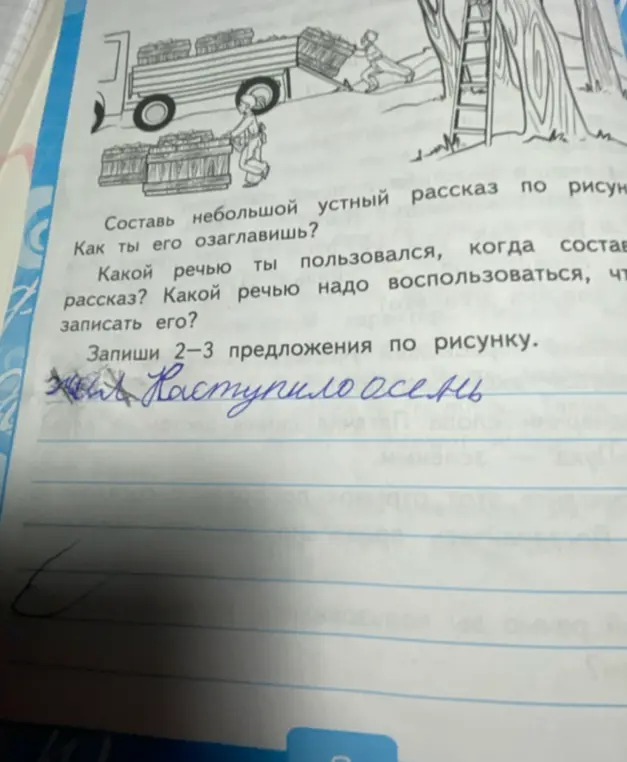 Составь небольшой устный рассказ по рисун
Как ты его озаглавишь?
Какой речью ты пользовался, когда состав
рассказ? Какой речью надо воспользоваться, чт
записать его?
Запиши 2—3 предложения по рисунку.
Наступило осень